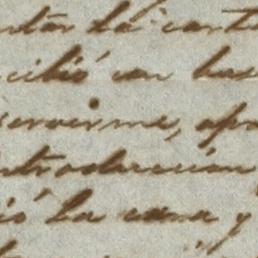 ntar la carta
cibió con bas
servirme, apr
ntroducción
ió la cena y